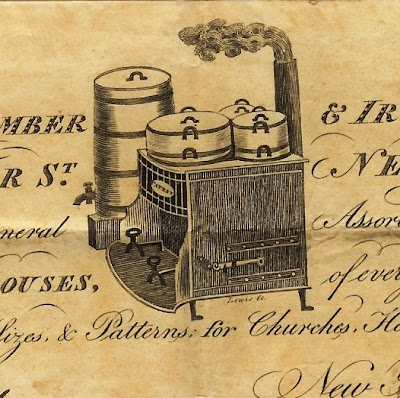 MBER & IR
R ST. NE
PATENT
neral Assor
OUSES, of ever
Sizes, & Patterns; for Churches, Ho
New